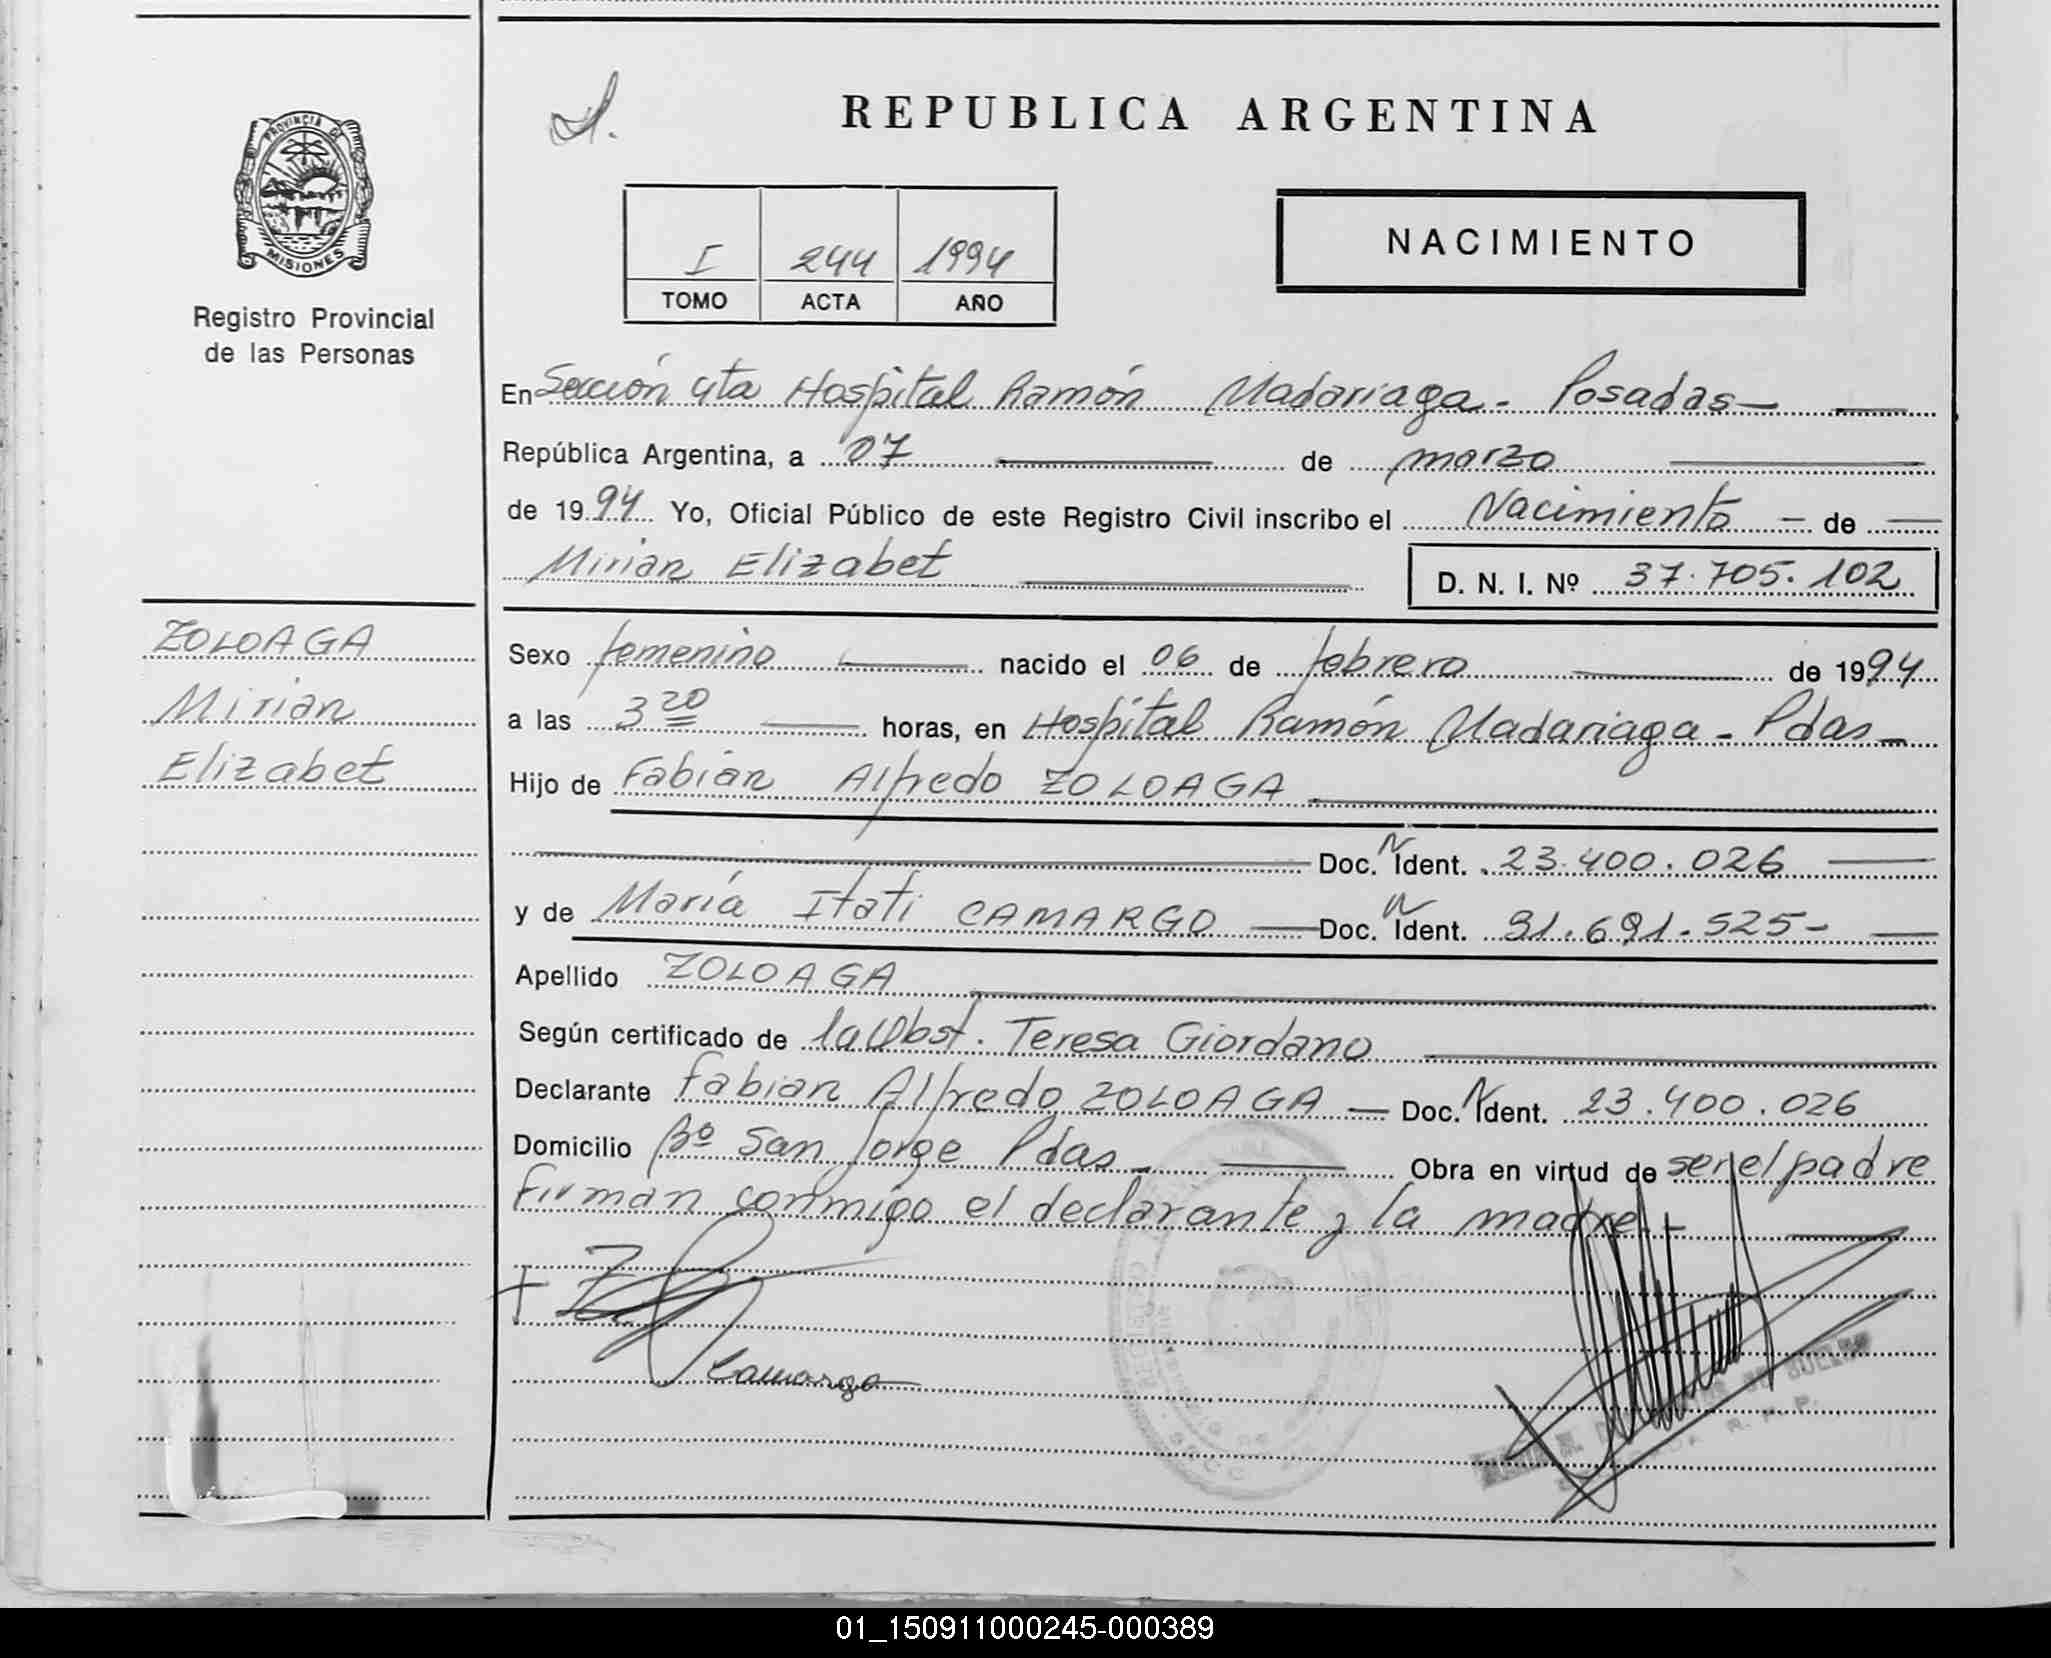 REPUBLICA ARGENTINA
PROVINCIA DE
MISIONES
Registro Provincial
de las Personas
I 244 1994
TOMO ACTA AÑO
NACIMIENTO
En Sección 4ta Hospital Ramón Madariaga - Posadas -
República Argentina, a 07 de marzo
de 1994 Yo, Oficial Público de este Registro Civil inscribo el Nacimiento - de
Mirian Elizabet D. N. I. Nº 37.705.102
ZOLOAGA
Mirian
Elizabet
Sexo femenino nacido el 06 de febrero de 1994
a las 3 20 horas, en Hospital Ramón Madariaga - Pdas -
Hijo de Fabian Alfredo ZOLOAGA
Doc. N Ident. 23.400.026
y de María Itati CAMARGO Doc. N Ident. 31.691.525 -
Apellido ZOLOAGA
Según certificado de la Obst. Teresa Giordano
Declarante Fabian Alfredo ZOLOAGA - Doc. N Ident. 23.400.026
Domicilio Bº San Jorge Pdas - Obra en virtud de ser el padre
Firman conmigo el declarante y la madre -
Camargo
01_150911000245-000389